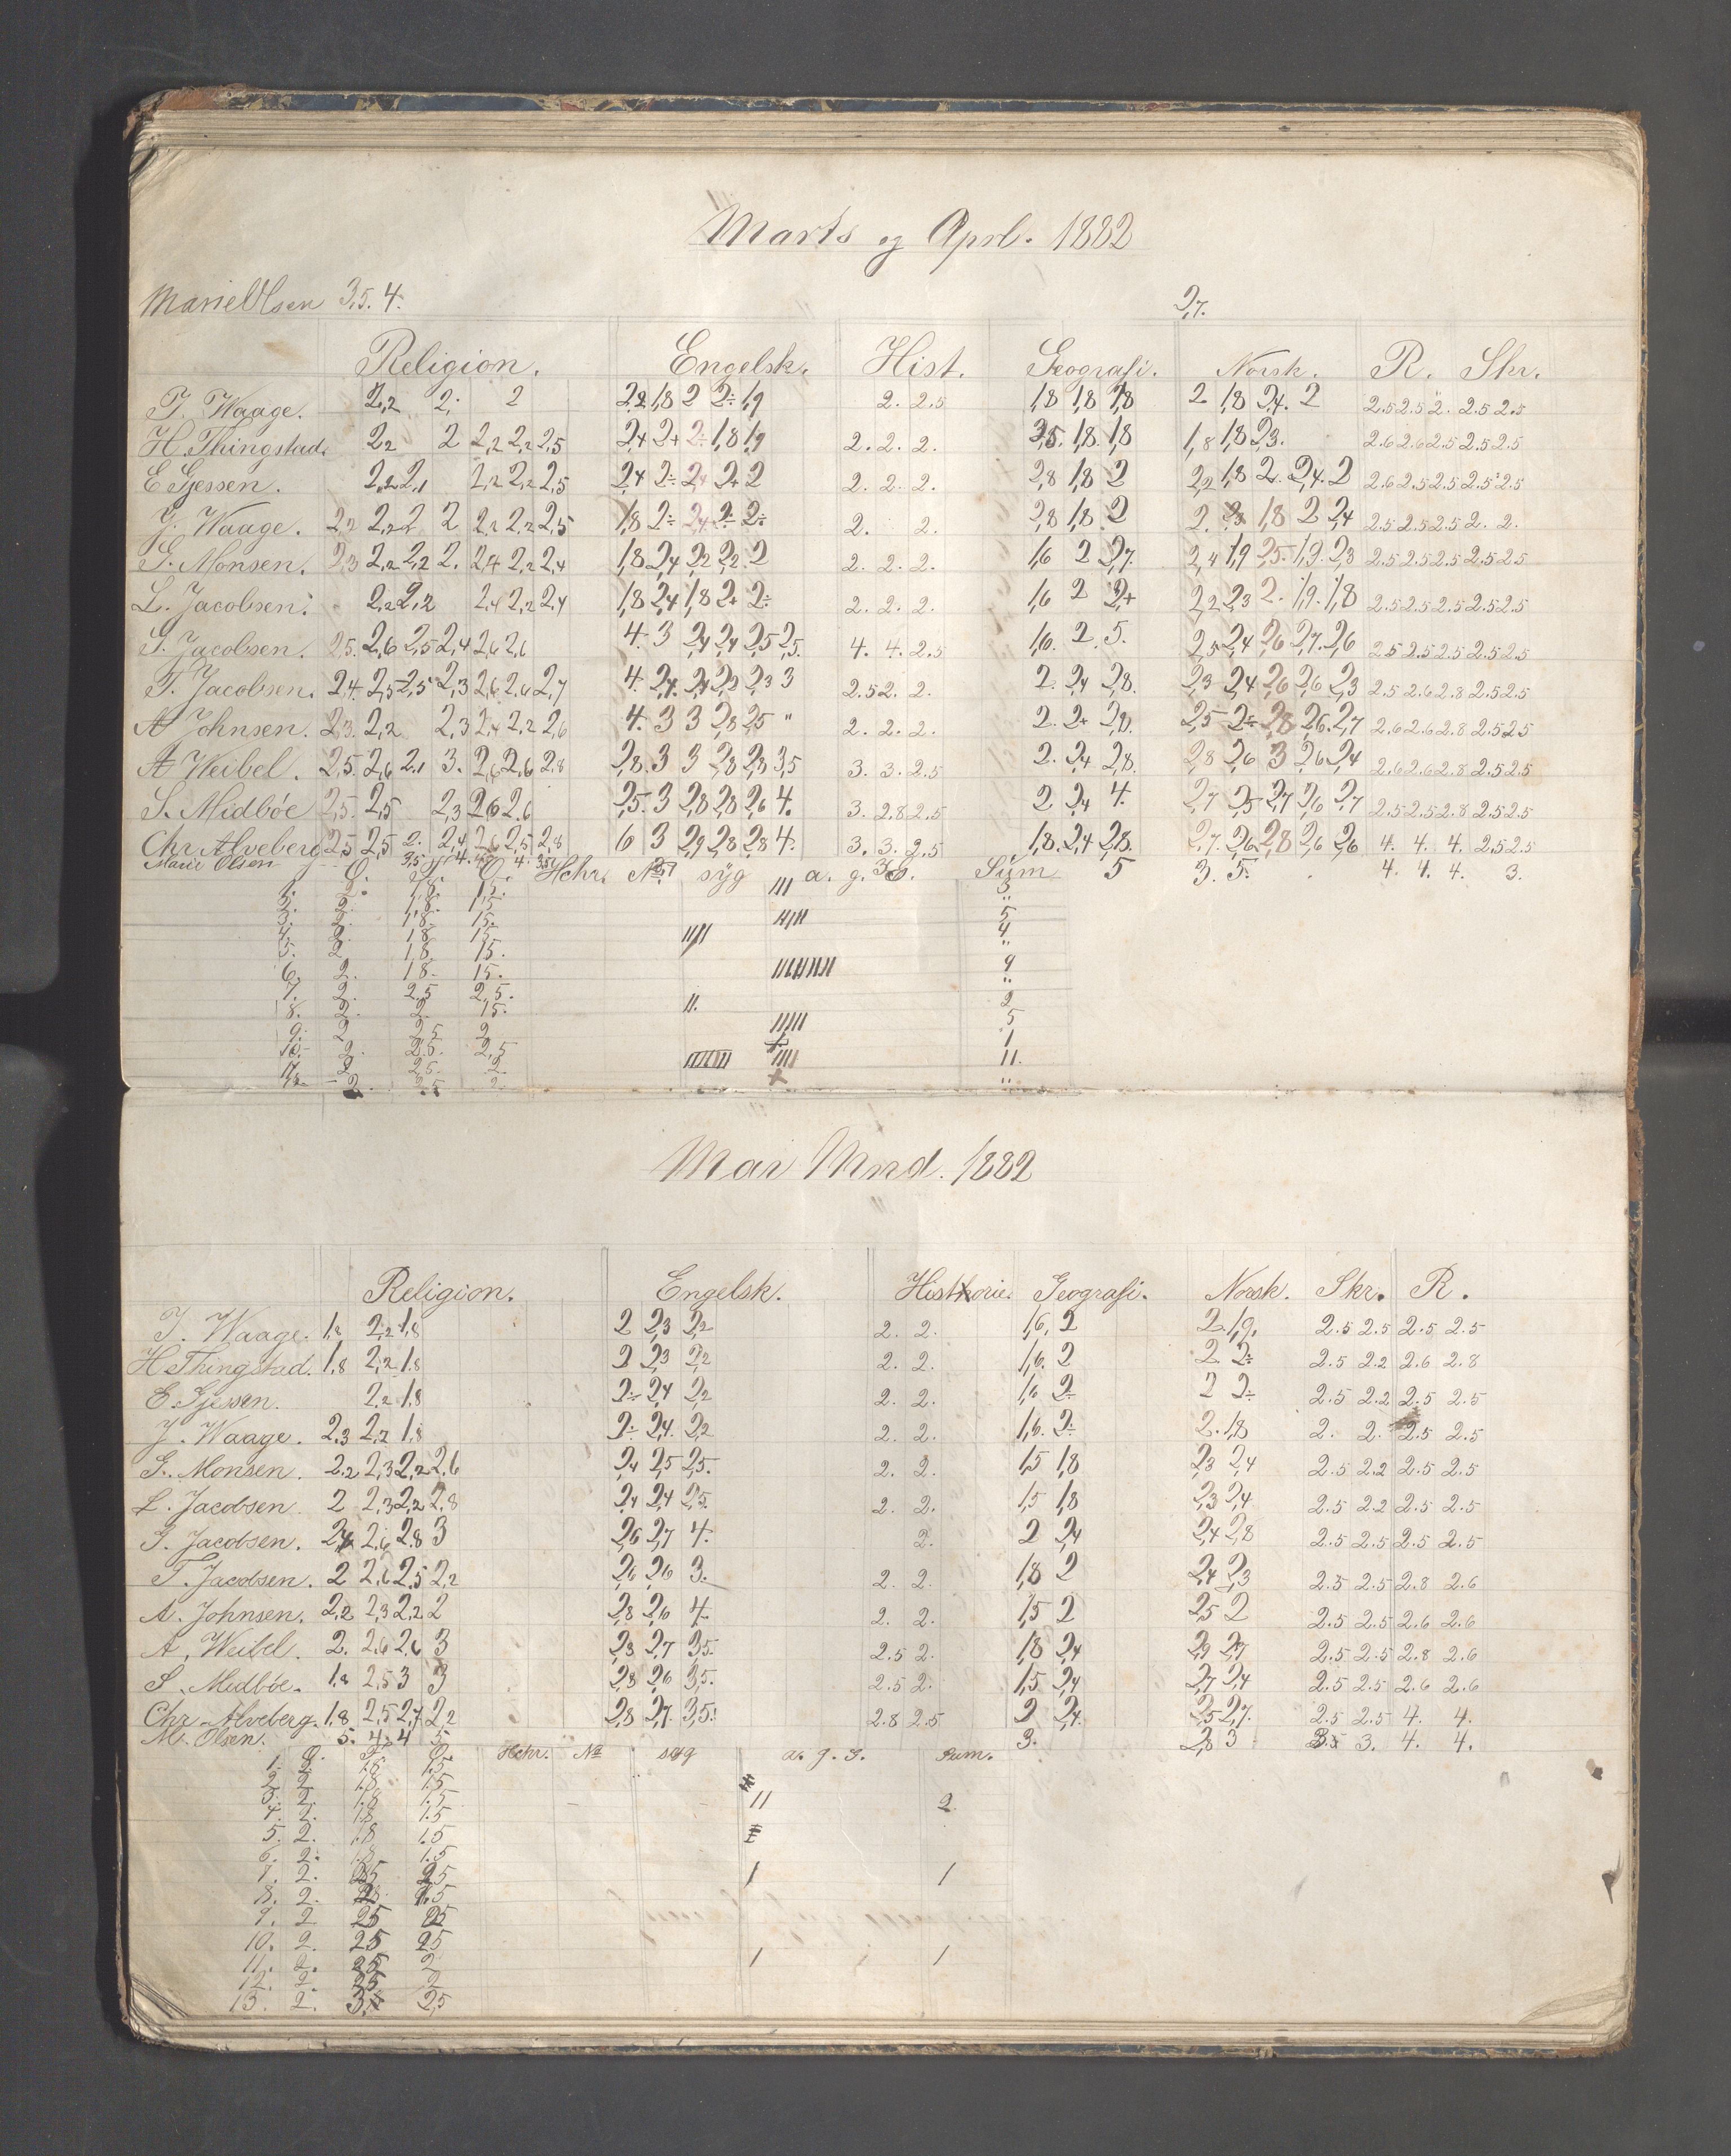 Marts og Aprl. 1882
Marie Olsen 3,5. 4. 2,7.
Religion. Engelsk. Hist. Geografi. Norsk. R. Skr.
T. Waage. 2,2 2. 2 2,2 1,8 2 2÷ 1,9 2. 2.5 1,8 1,8 1,8 2 1,8 2,4. 2 2.5 2.5 2. 2.5 2.5
H Thingstad. 2,2 2 2,2 2,2 2,5 2+ 2+ 2÷ 1,8 1,9 2. 2. 2. 3,5. 1,8. 1,8 1,8 1,8 2,3. 2.6 2.6 2.5 2.5 2.5
E Gjessen. 2,2 2,1 2,2 2,2 2,5 2,4 2÷ 2,4 2+ 2 2. 2. 2. 2,8 1,8 2 2,2 1,8 2. 2,4. 2 2.6 2.5 2.5 2.5 2.5
J. Waage. 2,2 2,2 2 2 2,2 2,2 2,5 1,8 2÷ 2,4 2÷ 2÷ 2. 2. 2,8 1,8. 2 2. 1,8 2 2,4 2.5 2.5 2.5 2. 2.
G. Monsen. 2,3 2,2 2,2 2. 2,4 2,2 2,4 1,8 2,4 2,2 2,2 2 2. 2. 2. 1,6 2 2,7. 2,4 1,9 2,5. 1,9. 2,3 2.5 2.5 2.5 2.5 2.5
L. Jacobsen. 2,2 2,2 2,4 2,2 2,4 1,8 2,4 1,8 2+ 2÷ 2. 2. 2. 1,6 2 2+ 2,2 2,3 2. 1,9. 1,8 2.5 2.5 2.5 2.5 2.5
G. Jacobsen. 2,5. 2,6 2,5 2,4 2,6 2,6 4. 3 2,4 2,4 2,5 2,5. 4. 4. 2.5 1,6. 2. 5. 2,5 2,4 2,6 2,7. 2,6 2.5 2.5 2.5 2.5 2.5
T. Jacobsen. 2,4. 2,5 2,5 2,3 2,6 2,6 2,7 4. 2,4. 2,4 2,2 2,3 3 2.5 2. 2. 2. 2,4 2,8. 2,3 2,4 2,6 2,6 2,3 2.5 2.6 2.8 2.5 2.5
A Johnsen. 2,3. 2,2 2,3 2,4 2,2 2,6 4. 3 3 2,8 2,5 " 2. 2. 2. 2. 2+ 2,0. 2,5 2÷ 2,8 2,6. 2,7 2.6 2.6 2.8 2.5 2.5
A Weibel. 2,5. 2,6 2,1 3. 2,6 2,6 2,8 2,8 3 3 2,8 2,8 3,5 3. 3. 2.5 2. 2,4 2,8. 2,8 2,6 3 2,6 2,4 2.6 2.6 2.8 2.5 2.5
S. Midbóe 2,5. 2,5 2,3 2,6 2,6 2,5. 3 2,8 2,8 2,6 4. 3. 2.8 2.5 2 2,4 4. 2,7 2,5 2,7 2,6 2,7 2.5 2.5 2.8 2.5 2.5
Chr Alveberg 2,5 2,5 2. 2,4 2,6 2,5 2,8 6 3 2,9 2,8 2,8 4. 3. 3. 2.5 1,8. 2,4 2,8. 2,7. 2,6 2,8 2,6 2,6 4. 4. 4. 2.5 2.5
Marie Olsen 5 3. 5. 4. 4. 4. 3.
Hchr. No syg a. g. Sum
1. 2. 1,8. 1,5. /// 3
2. 2. 1,8. 1,5 "
3. 2. 1,8 1,5. ///// 5
4. 2. 1,8 1,5 //// 4
5. 2 1,8 1,5. "
6. 2. 1,8. 1,5. 9
7. 2. 2.5 2,5. "
8. 2. 2. 1,5. //. 2
9. 2 2,5 2 ///// 5
10. 2. 2.5. 2,5 1
11. 2 2,5. 2. //// 11.
12. 2. 2,5 2. × "
Mai Mnd. 1882
Religion. Engelsk. Historie. Geografi. Norsk. Skr. R.
T. Waage. 1,8 2,2 1,8 2 2,3 2,2 2. 2. 1,6. 2 2. 1,9. 2.5 2.5 2.5 2.5
H Thingstad. 1,8 2,2 1,8 2 2,3 2,2 2. 2. 1,6. 2 2 2÷ 2.5 2.2 2.6 2.8
E. Gjessen. 2,2 1,8 2÷ 2,4 2,2 2. 2. 1,6 2÷ 2 2÷ 2.5 2.2 2.5 2.5
J. Waage. 2,3 2,2 1,8 2÷ 2,4. 2,2 2. 2. 1,6. 2÷ 2. 1,8 2. 2. 2.5 2.5
G. Monsen. 2,2 2,3 2,2 2,6 2,4 2,5 2,5. 2. 2. 1,5 1,8 2,3 2,4 2.5 2.2 2.5 2.5
L. Jacobsen. 2 2,3 2,2 2,8 2,4 2,4 2,5. 2. 2. 1,5 1,8 2,3 2,4 2.5 2.2 2.5 2.5
G. Jacobsen. 2,4 2,6 2,8 3 2,6 2,7 4. 2. 2 2,4 2,4 2,8 2.5 2.5 2.5 2.5
T. Jacobsen. 2 2,6 2,5 2,2 2,6 2,6 3. 2. 2. 1,8 2 2,4 2,3 2.5 2.5 2.8 2.6
A. Johnsen. 2,2 2,3 2,2 2 2,8 2,6 4. 2. 2. 1,5 2 2,5 2 2.5 2.5 2.6 2.6
A. Weibel. 2. 2,6 2,6 3 2,3 2,7 3,5. 2.5 2. 1,8 2,4 2,9 2,7 2.5 2.5 2.8 2.6
S. Medbóe. 1,8 2,5 3 3 2,8 2,6 3,5. 2.5 2. 1,5 2,4 2,7 2,4 2.5 2.5 2.6 2.6
Chr. Alveberg. 1,8 2,5 2,7 2,2 2,8 2,7. 3,5. 2.8 2.5 2 2,4. 2,5 2,7. 2.5 2.5 4. 4.
M. Olsen. 5. 4 4 5 3. 2,8 3 3. 4. 4.
Hchr. No syg a. g. s. Sum.
1. 2. 1.8 1.5
2. 2. 1.8 1.5
3. 2. 1.8 1.5 // 2.
4. 2. 1.8 1.5
5. 2. 1.8 1.5
6. 2. 1.8 1.5
7. 2. 2,5 2,5 / 1
8. 2. 1.5
9. 2 2,5 2,5
10. 2. 2,5 2,5
11. 2. 2,5 2 / 1
12. 2. 2,5 2
13. 2. 3. 2,5